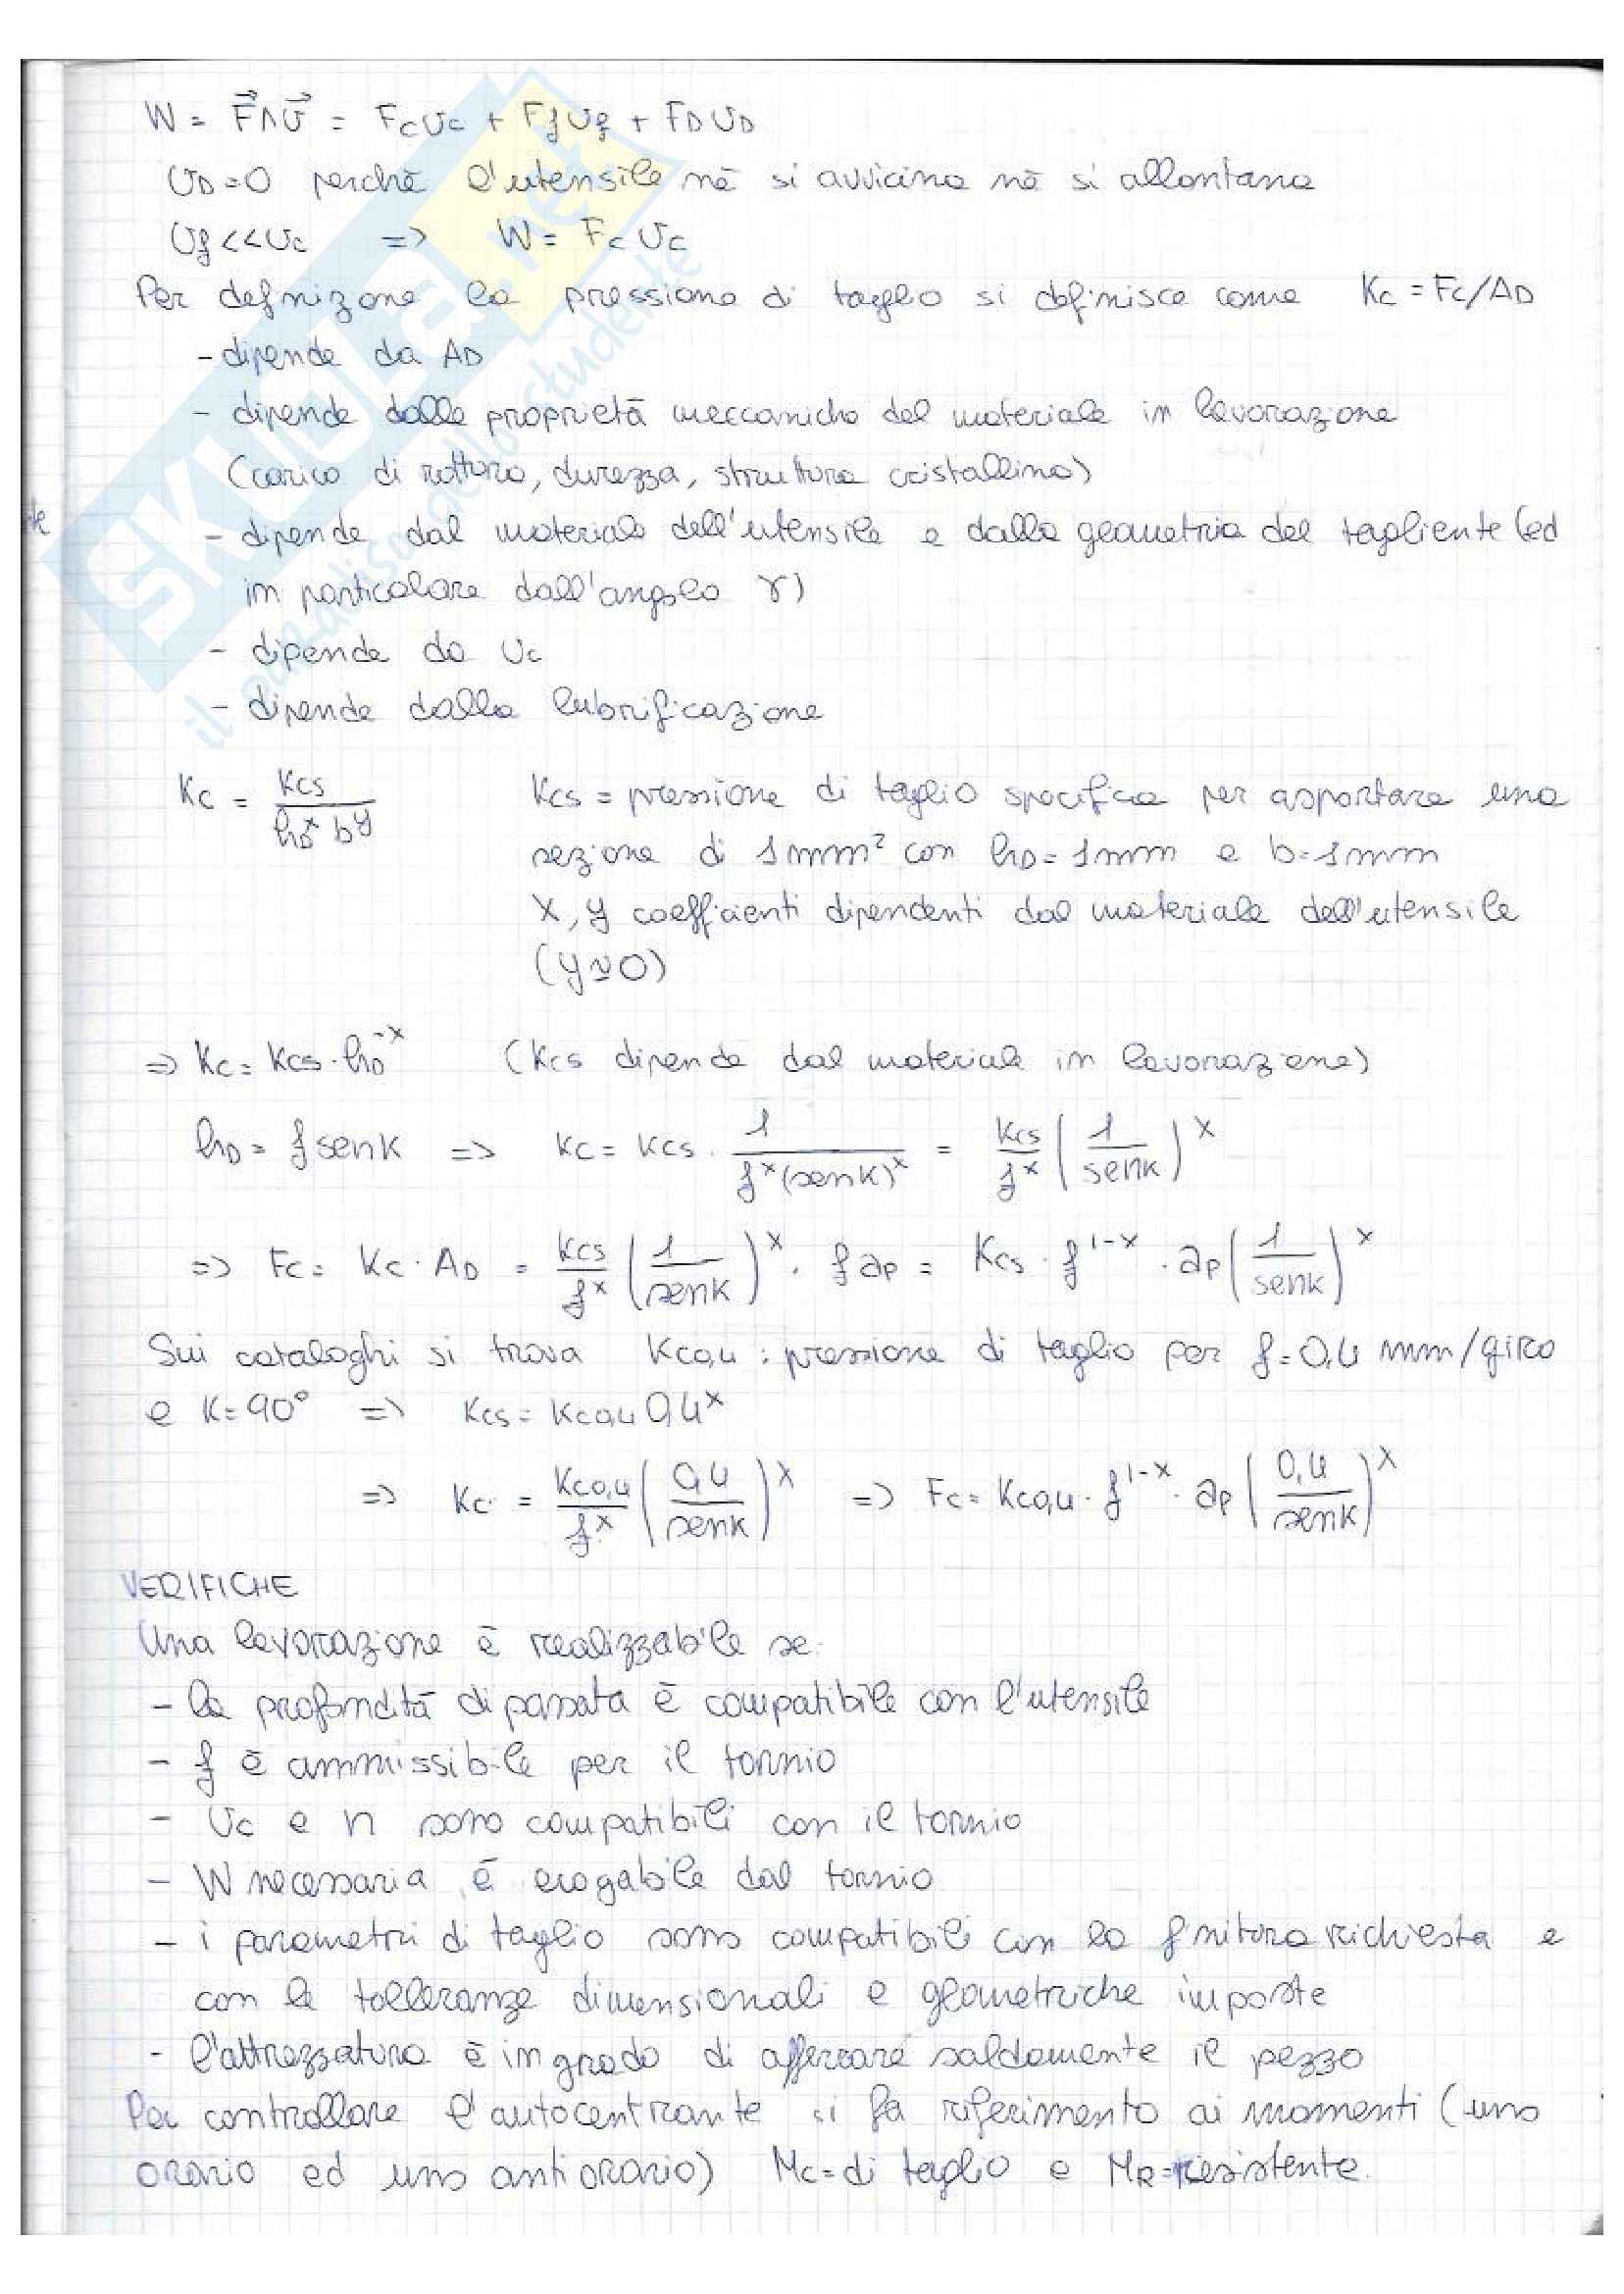 W = F⃗∧v⃗ = Fcvc + Ffvf + FDvD
vD=0 perchè l'utensile nè si avvicina nè si allontana
vf<<vc => W = Fcvc
Per definizone la pressione di taglio si definisce come Kc = Fc/AD
- dipende da AD
- dipende dalle proprietà meccaniche del materiale in lavorazione
(carico di rottura, durezza, struttura cristallina)
- dipende dal materiale dell'utensile e dalla geometria del tagliente (ed
in particolare dall'angolo γ)
- dipende da vc
- dipende dalla lubrificazione
Kc = Kcs / (hD^x b^y) Kcs = pressione di taglio specifica per asportare una
sezione di 1mm² con hD=1mm e b=1mm
x, y coefficienti dipendenti dal materiale dell'utensile
(y≃0)
=> Kc = Kcs · hD^-x (Kcs dipende dal materiale in lavorazione)
hD = f senK => Kc = Kcs · 1/(f^x (senK)^x) = Kcs/f^x (1/senK)^x
=> Fc = Kc · AD = Kcs/f^x (1/senK)^x · f ap = Kcs · f^1-x · ap (1/senK)^x
Sui cataloghi si trova Kc0,4 : pressione di taglio per f=0,4 mm/giro
e K=90° => Kcs = Kc0,4 0,4^x
=> Kc = Kc0,4/f^x (0,4/senK)^x => Fc = Kc0,4 · f^1-x · ap (0,4/senK)^x
VERIFICHE
Una lavorazione è realizzabile se:
- la profondità di passata è compatibile con l'utensile
- f è ammissibile per il tornio
- vc e n sono compatibili con il tornio
- W necessaria è erogabile dal tornio
- i parametri di taglio sono compatibili con la finitura richiesta e
con le tolleranze dimensionali e geometriche imposte
- l'attrezzatura è in grado di afferrare saldamente il pezzo
Per controllare l'autocentrante si fa riferimento ai momenti (uno
orario ed uno antiorario) Mc = di taglio e MR = resistente.
SKUOLA.net
il paradiso dello studente